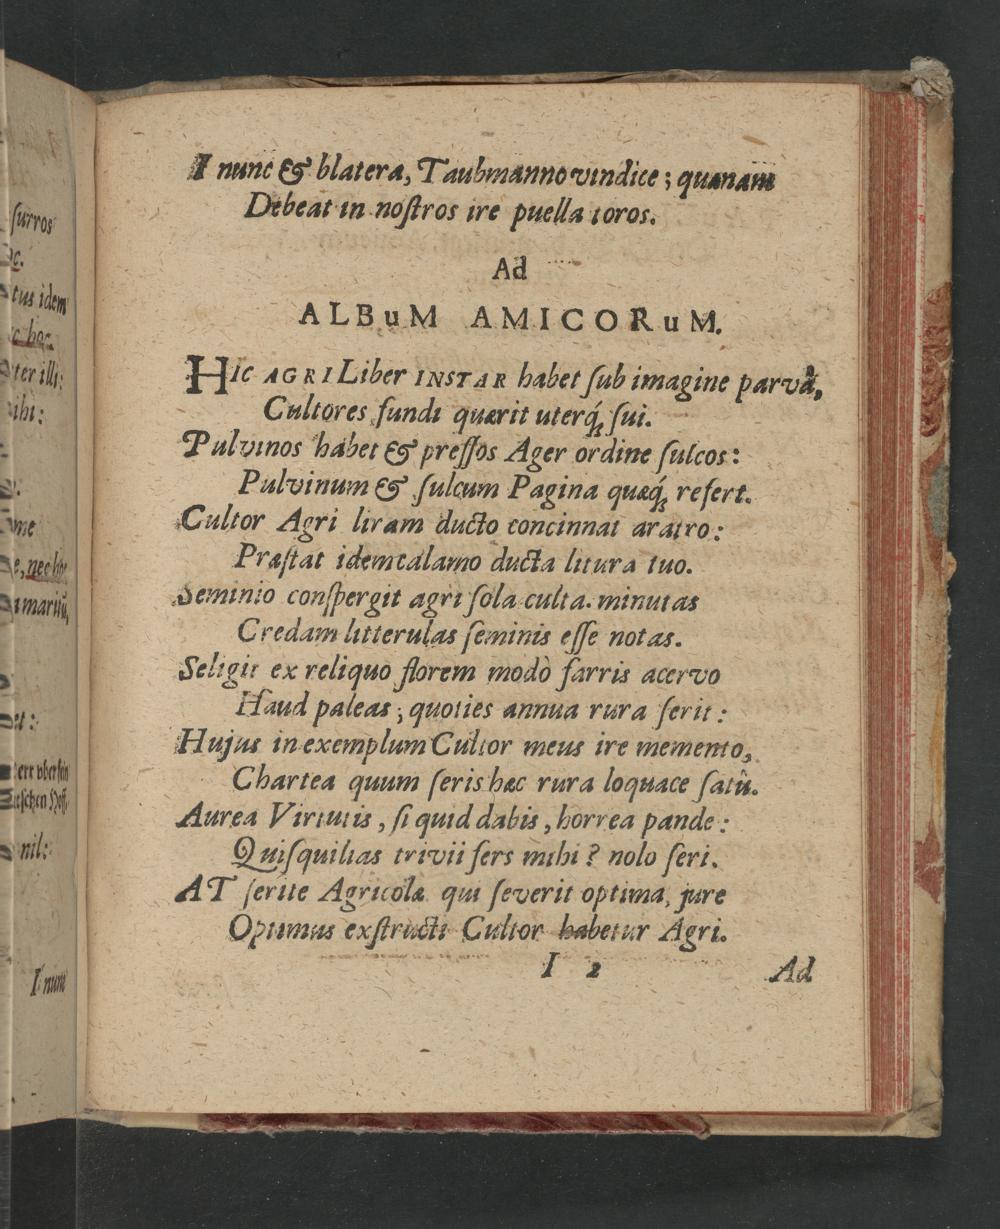 ſurros
tus idem
c hoc
ter illi:
ibi:
me
e, nec hoc
nil:
I num
I nunc & blatera, Taubmanno vindice; quænam
Debeat in noſtros ire puella toros.
Ad
ALBuM AMICORuM.
HIc AGRI Liber INSTAR habet ſub imagine parvâ,
Cultores fundi quærit uterq́; ſui.
Pulvinos habet & preſſos Ager ordine ſulcos:
Pulvinum & ſulcum Pagina quæq́; refert.
Cultor Agri liram ducto concinnat aratro:
Præſtat idem calamo ducta litura tuo.
Seminio conſpergit agri ſola culta. minutas
Credam litterulas ſeminis eſſe notas.
Seligit ex reliquo florem modò farris acervo
Haud paleas; quoties annua rura ſerit:
Hujus in exemplum Cultor meus ire memento,
Chartea quum ſeris hæc rura loquace ſatû.
Aurea Virtutis, ſi quid dabis, horrea pande:
Quiſquilias trivii ſers mihi? nolo ſeri.
AT ſerite Agricolæ qui ſeverit optima, jure
Optimus exſtructi Cultor habetur Agri.
I 2
Ad